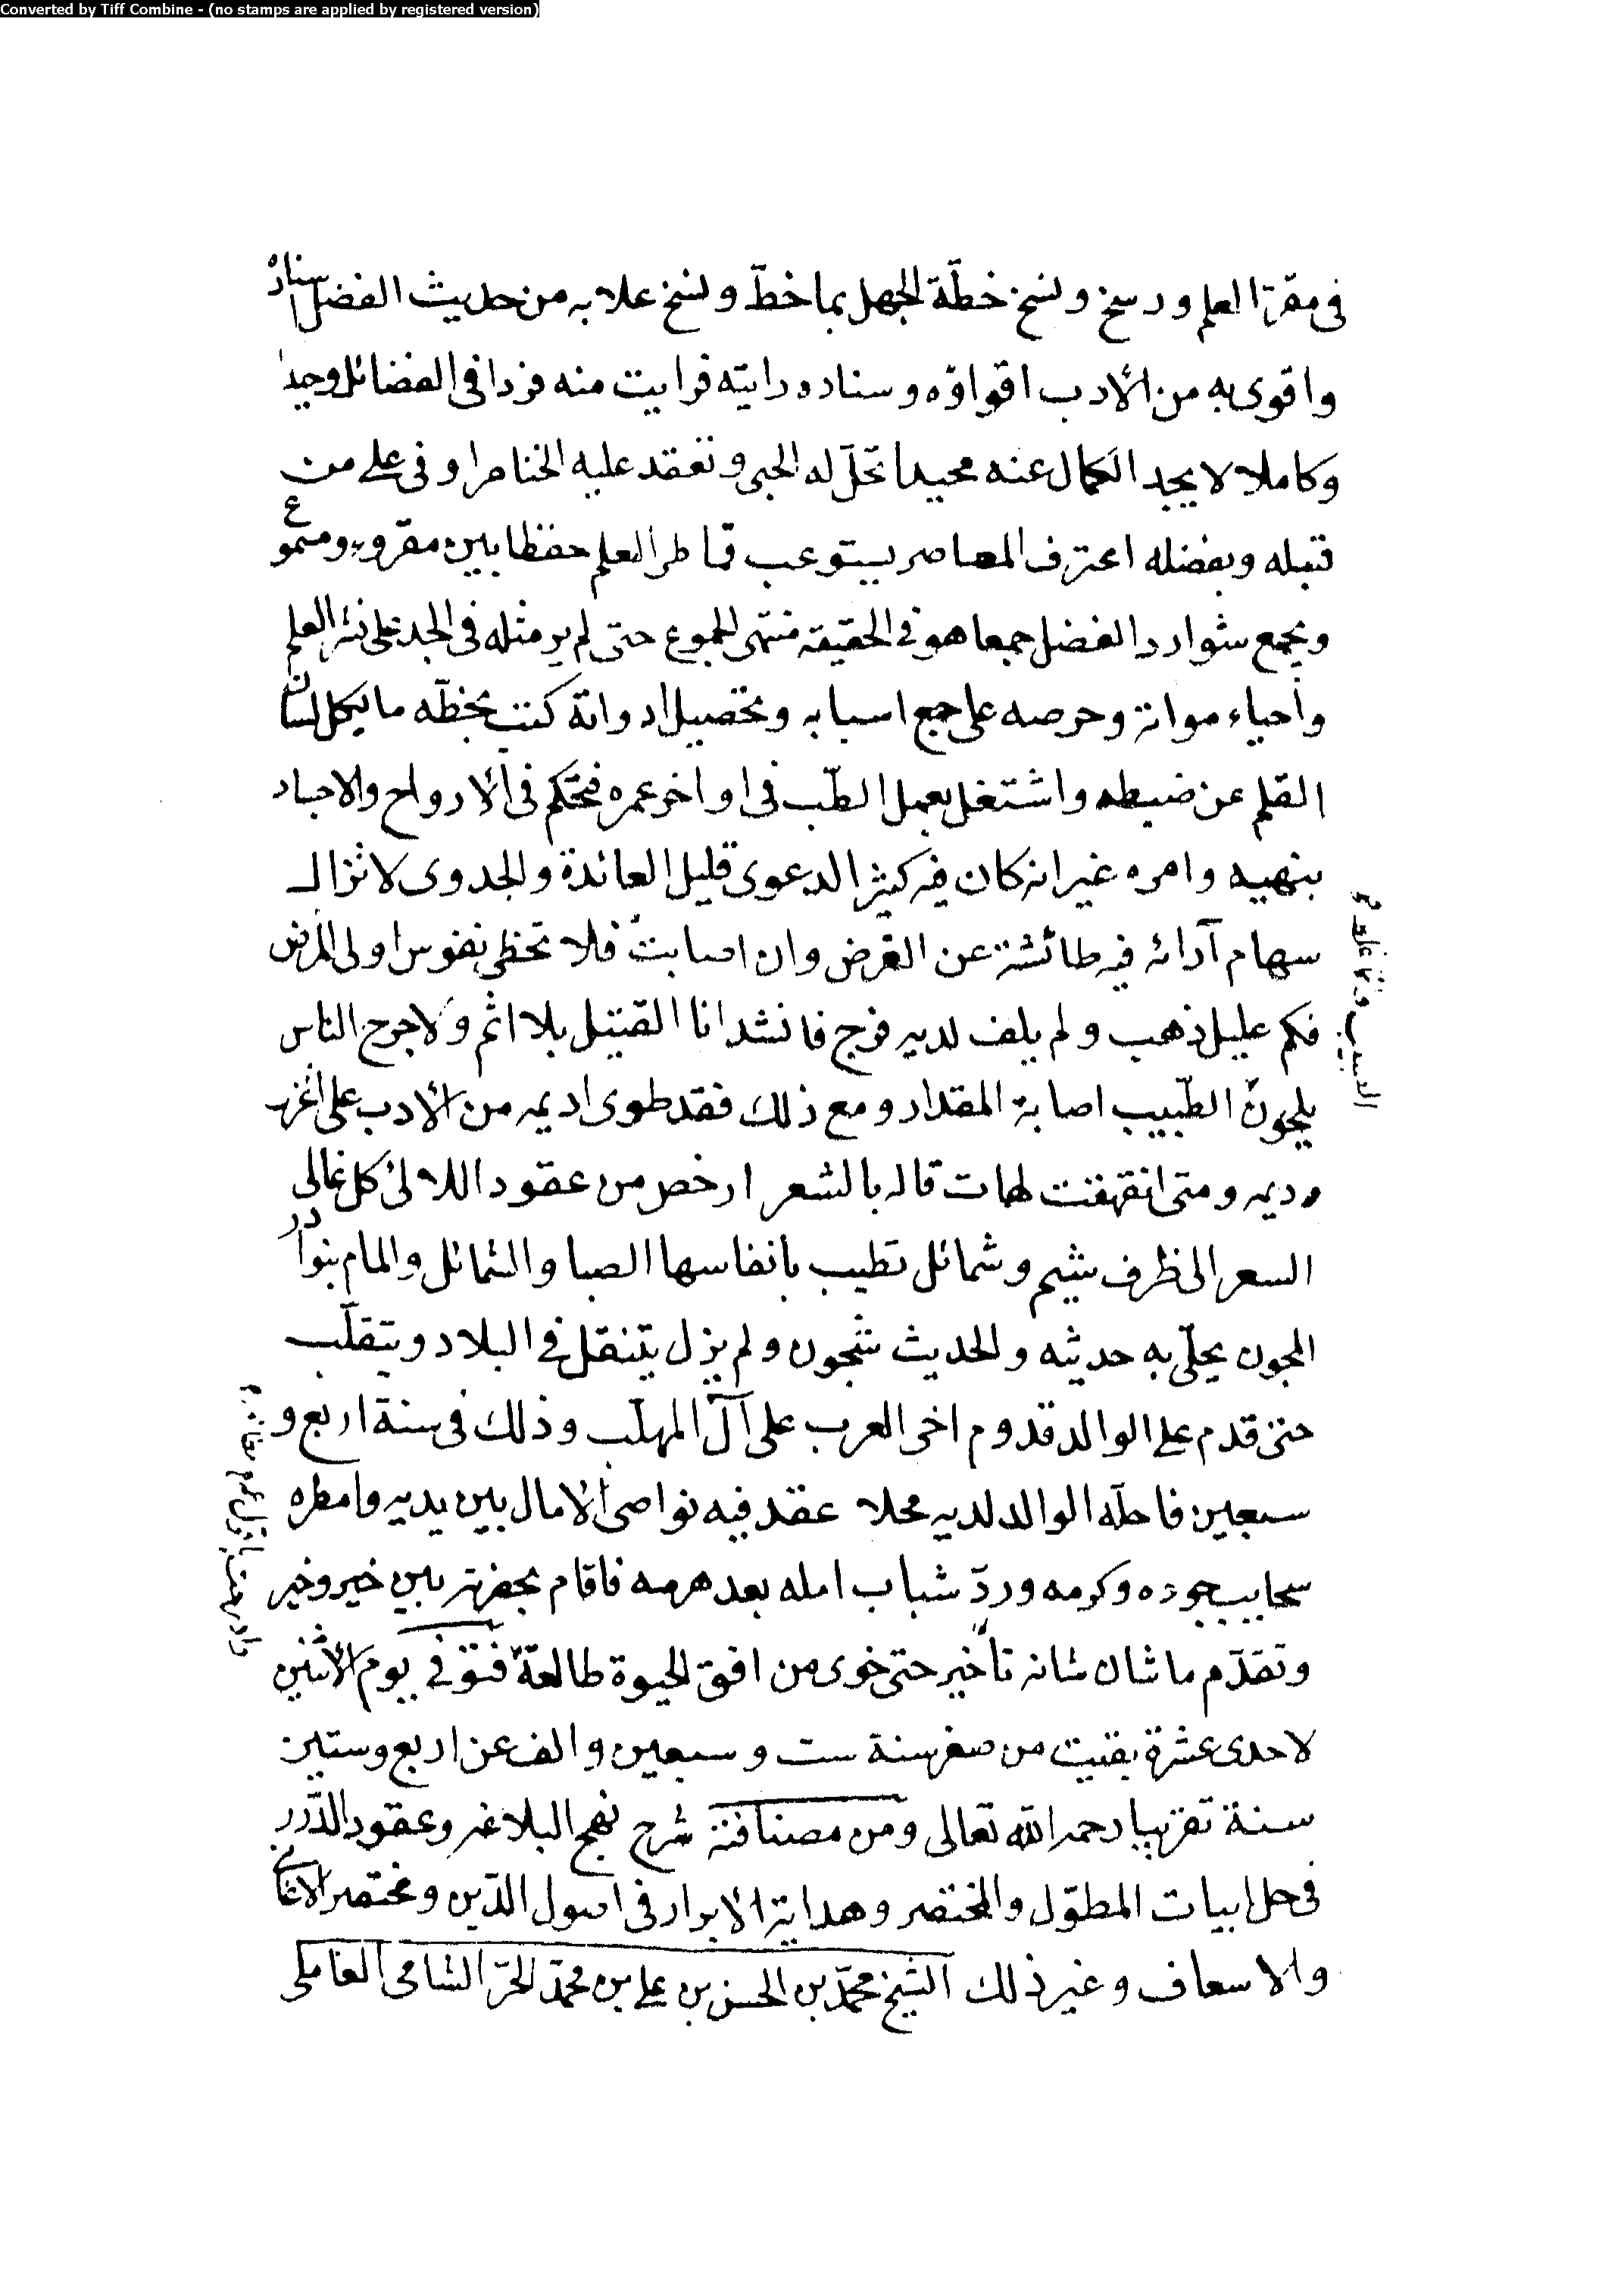 Converted by Tiff Combine - (no stamps are applied by registered version)
فى مقرّة العلم ورسخ ونسخ خطّة الجهل بما خطّ ونسخ علا به من حديث الفضل اسناده
واقوى به من الأدب اقواؤه وسناده رايته فرايت منه فردا فى الفضائل وحيدا
وكاملا لا يجد الكمال عنه محيدا تحلّ له الحبى وتعقد عليه الخناصر اوفى على من
قبله وبفضله اعترف المعاصر يستوعب قماطر العلم حفظا بين مقروء ومسموع
ويجمع شوارد الفضل جمعا هو فى الحقيقة منتهى الجموع حتى لم ير مثله فى الجد على نشر العلم
وأحياء مواته وحرصه على جمع اسبابه وتحصيل ادواته كتب بخطّه ما يكل لسان
القلم عن ضبطه واشتغل بعمل الطّب فى اواخر عمره فتحكم فى الأرواح والاجساد
بنهيه وامره غير انه كان فيه كثير الدعوى قليل العائدة والجدوى لا تزال
سهام آرائه فيه طائشة عن الغرض وان اصابت فلا تخطى نفوس اولى المرض
فكم عليل ذهب ولم يلف لديه فرج فانشد انا القتيل بلا اثم ولا حرج الناس
يلحون الطّبيب اصابة المقدار ومع ذلك فقد طوى اديمه من الأدب على اغزر
ديمه ومتى انفهقت لهات قاله بالشعر ارخص من عقود اللالئ كل غالى
السعر الى ظرف شيم وشمائل تطيب بانفاسها الصبا والشمائل والمام بنوادر
المجون يحلّى به حديثه والحديث شجون ولم يزل يتنقل فى البلاد ويتقلّب
حتى قدم على الوالد قدوم اخى العرب على آل المهلّب وذلك فى سنة اربع و
سبعين فاحلّه الوالد لديه محلا عقد فيه نواصى الأمال بين يديه وامطره
سحايب جوده وكرمه وردّ شباب امله بعد هرمه فاقام بحضرته بين خير وخير
وتقدّم ما شان شانه تأخير حتى خوى من افق الحيوة طالعة فتوفى يوم الأثنين
لاحدى عشرة بقيت من صفر سنة ست وسبعين والف عن اربع وستين
سنة تقريبا رحمه الله تعالى ومن مصنافته شرح نهج البلاغه وعقود الدّرر
فى حل ابيات المطوّل والمختصر وهداية الابرار فى اصول الدّين ومختصر الاغانى
والاسعاف وغير ذلك الشيخ محمّد بن الحسن بن على بن محمّد الحرّ الشامى العاملى